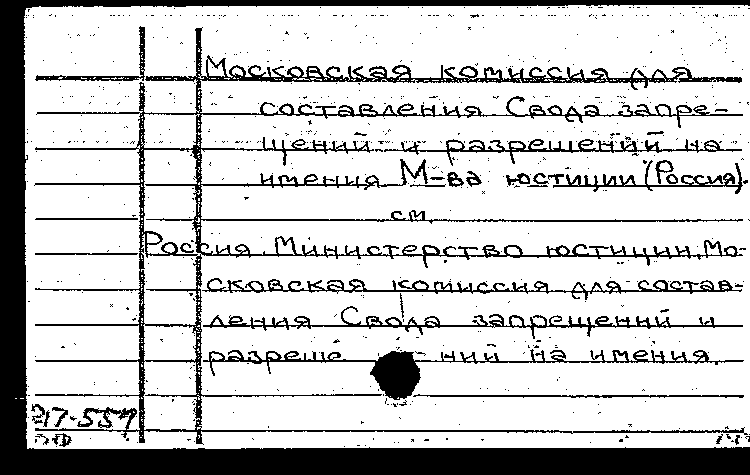 Московская комиссия для
составления Свода запре-
щений и разрешений на
имения М-ва юстиции (Россия).
см.
Россия. Министерство юстиции. Мо-
сковская комиссия для состав-
ления Свода запрещений и
разреше - ний на имения.
217-557